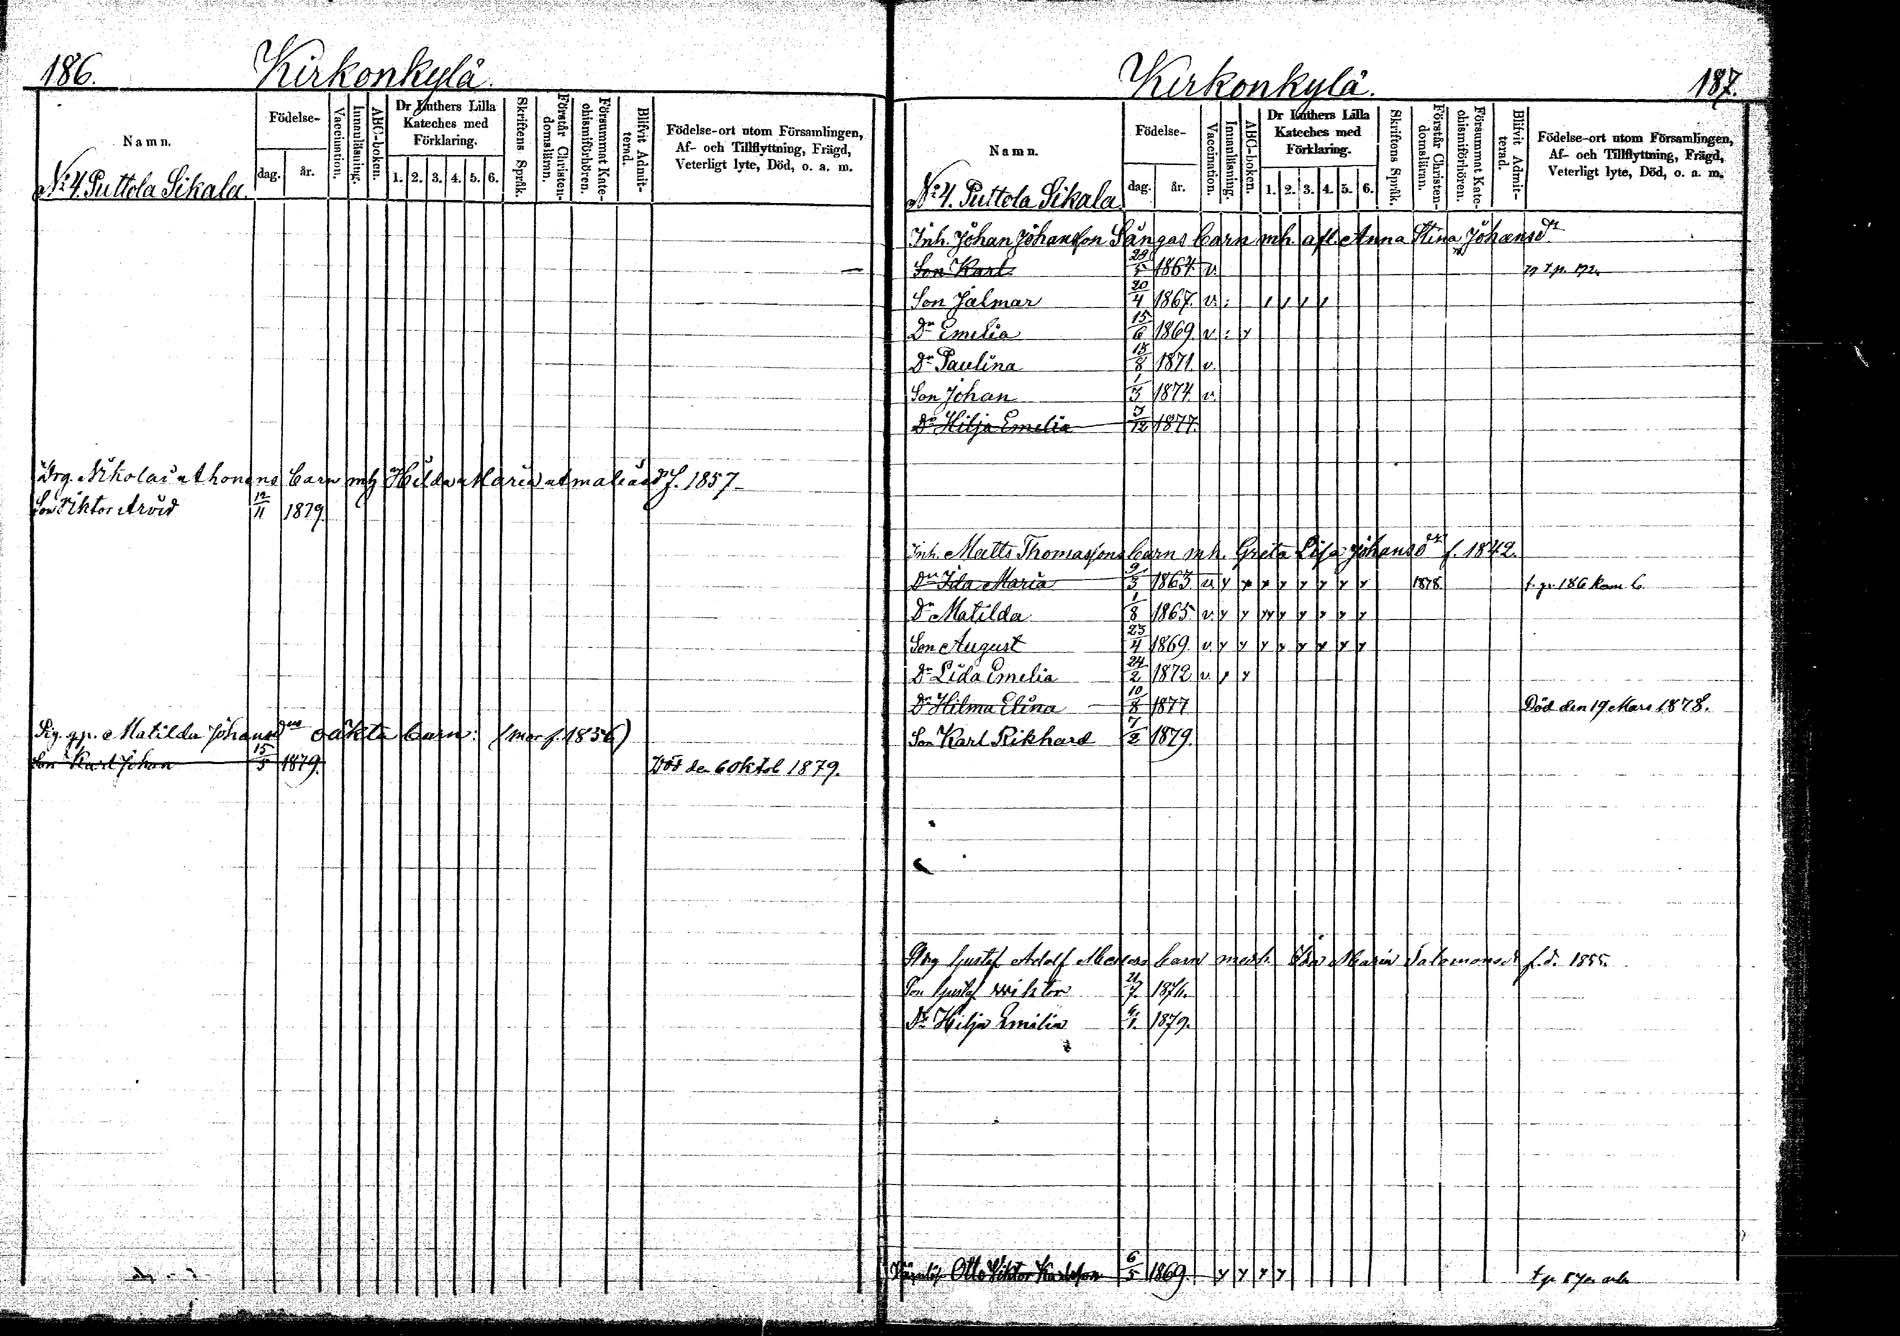 186.
Kirkonkylä.
Namn.
Födelse-
dag.
år.
Vaccination.
Innanläsning.
ABC-boken.
Dr Luthers Lilla
Kateches med
Förklaring.
1. 2. 3. 4. 5. 6.
Skriftens Språk.
Förstår Christen-
domsläran.
Försummat Kate-
chismiförhören.
Blifvit Admit-
terad.
Födelse-ort utom Församlingen,
Af- och Tillflyttning, Frägd,
Veterligt lyte, Död, o. a. m.
No 4. Puttola Sikala.
Drg. Nikolai Ahonens barn mh Hilda Maria Amaliasdr f. 1857.
Son Viktor Arvid 12/11 1879.
Pig. gp. Matilda Johansdrs oäkta barn: (mor f. 1856)
Son Karl Johan 15/5 1879. Död den 6 Oktob 1879.
Kirkonkylä.
187.
Namn.
Födelse-
dag.
år.
Vaccination.
Innanläsning.
ABC-boken.
Dr Luthers Lilla
Kateches med
Förklaring.
1. 2. 3. 4. 5. 6.
Skriftens Språk.
Förstår Christen-
domsläran.
Försummat Kate-
chismiförhören.
Blifvit Admit-
terad.
Födelse-ort utom Församlingen,
Af- och Tillflyttning, Frägd,
Veterligt lyte, Död, o. a. m.
No 4. Puttola Sikala
Inh. Johan Johansson Sångas barn mh. afl. Anna Stina Johansdr
Son Karl 29/5 1864. v.
Son Jalmar 20/4 1867. v.
Dr Emelia 15/6 1869. v
Dr Paulina 18/8 1871. v.
Son Johan 1/3 1874. v.
Dr Hilja Emelia 3/12 1877.
Inh. Matts Thomassons barn mh. Greta Lisa Johansdr f. 1842.
Dr Ida Maria 9/3 1863. v. 1878. t. p. 186 kom. b.
Dr Matilda 1/8 1865. v.
Son August 23/4 1869. v.
Dr Lida Emelia 24/2 1872 v
Dr Hilma Elina 10/8 1877 Död den 19 Mars 1878.
Son Karl Rikhard 7/2 1879.
Gustaf Adolf barn med h. Ida Maria Salomonsdr f.d. 1855.
Son Gustaf Wiktor 21/7. 1876.
Dr Hilja Emilia 1879.
Otto Viktor Karlsson 6/5 1869.